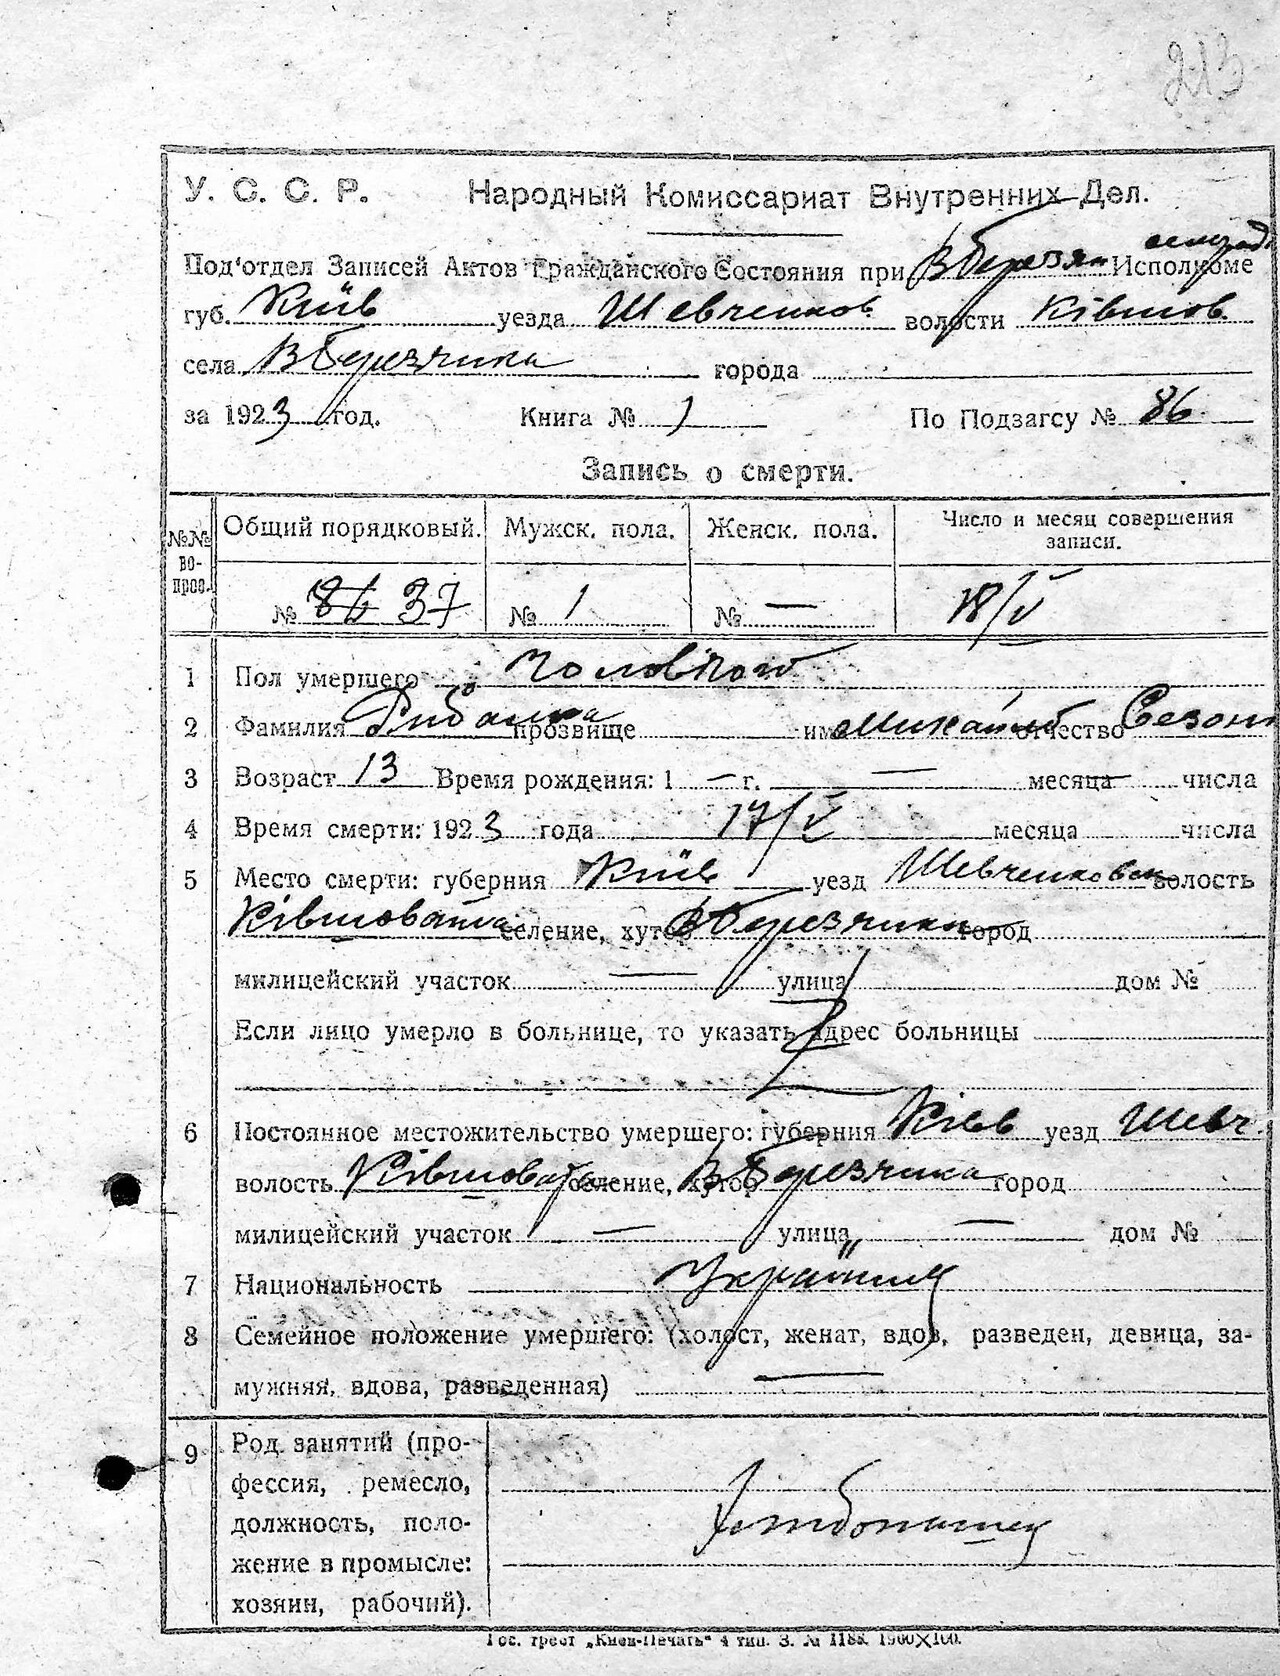 213
У. С. С. Р. Народный Комиссариат Внутренних Дел.
Под'отдел Записей Актов Гражданского Состояния при В Березян Исполкоме
губ. Київ уезда Шевченков. волости Ківшов.
села В Березянка города
за 1923 год. Книга № 1 По Подзагсу № 86.
Запись о смерти.
№№ вопрос. Общий порядковый. Мужск. пола. Женск. пола. Число и месяц совершения записи.
№ 86 37 № 1 № — 18/V
1 Пол умершего чоловічого
2 Фамилия Рибалка прозвище имя Михайло отчество Сезон
3 Возраст 13 Время рождения: 1 — г. — месяца числа
4 Время смерти: 1923 года 17/V месяца числа
5 Место смерти: губерния Київ уезд Шевченковск волость
Ківшовата селение, хутор В Березянка город
милицейский участок — улица дом №
Если лицо умерло в больнице, то указать адрес больницы
6 Постоянное местожительство умершего: губерния Київ уезд Шевч.
волость Ківшовата селение, хутор В Березянка город
милицейский участок — улица — дом №
7 Национальность Українец
8 Семейное положение умершего: (холост, женат, вдов, разведен, девица, за-
мужняя, вдова, разведенная) —
9 Род занятий (про-
фессия, ремесло,
должность, поло-
жение в промысле:
хозяин, рабочий).
Хлібопашец
Гос. трест „Киев-Печать" 4 тип. З. № 1188. 1900×100.